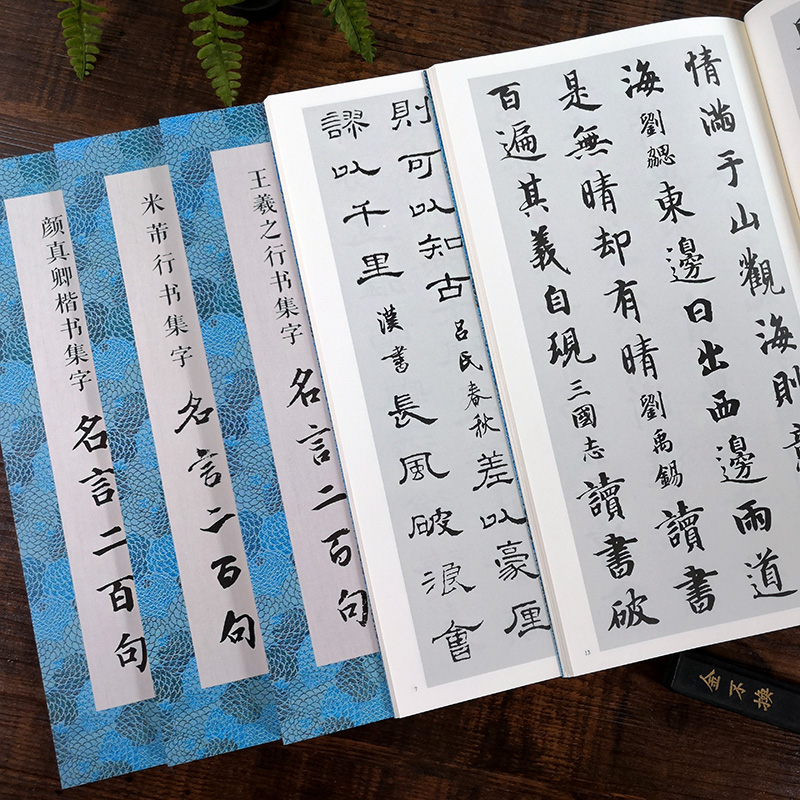 颜真卿楷书集字
名言二百句
米芾行书集字
名言二百句
王羲之行书集字
名言二百句
則可以知古 呂氏春秋 差以豪厘
謬以千里 漢書 長風破浪會
7
情滿于山觀海則
海 劉勰 東邊日出西邊雨道
是無晴却有晴 劉禹錫 讀書
百遍其義自現 三國志 讀書破
13
金不換